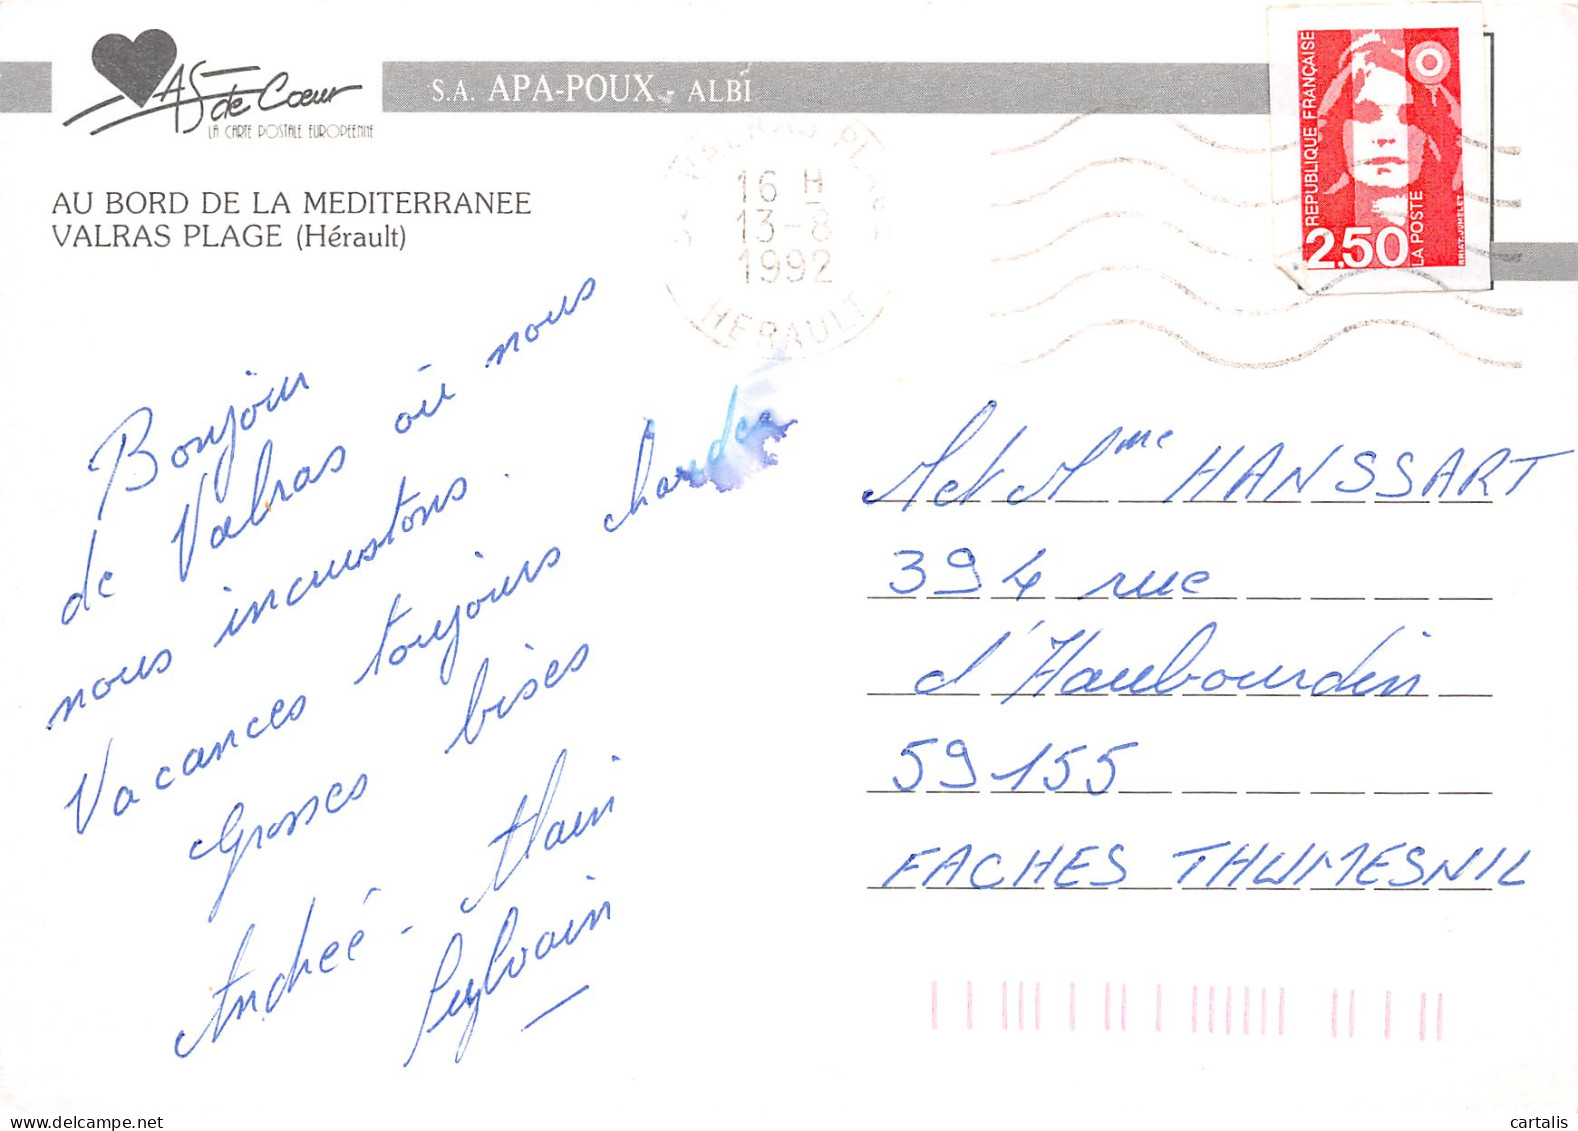 AS de Cœur
LA CARTE POSTALE EUROPEENNE
S.A. APA-POUX - ALBI
AU BORD DE LA MEDITERRANEE
VALRAS PLAGE (Hérault)
VALRAS PLAGE
16 H
13-8
1992
HERAULT
REPUBLIQUE FRANÇAISE
2,50
LA POSTE
BRIAT-JUMELET
Bonjour
de Valras où nous
nous incrustons.
Vacances toujours chaudes
Grosses bises
Andréé - Alain
Sylvain
M et Mme HANSSART
394 rue
d'Haubourdin
59155
FACHES THUMESNIL
cartalis